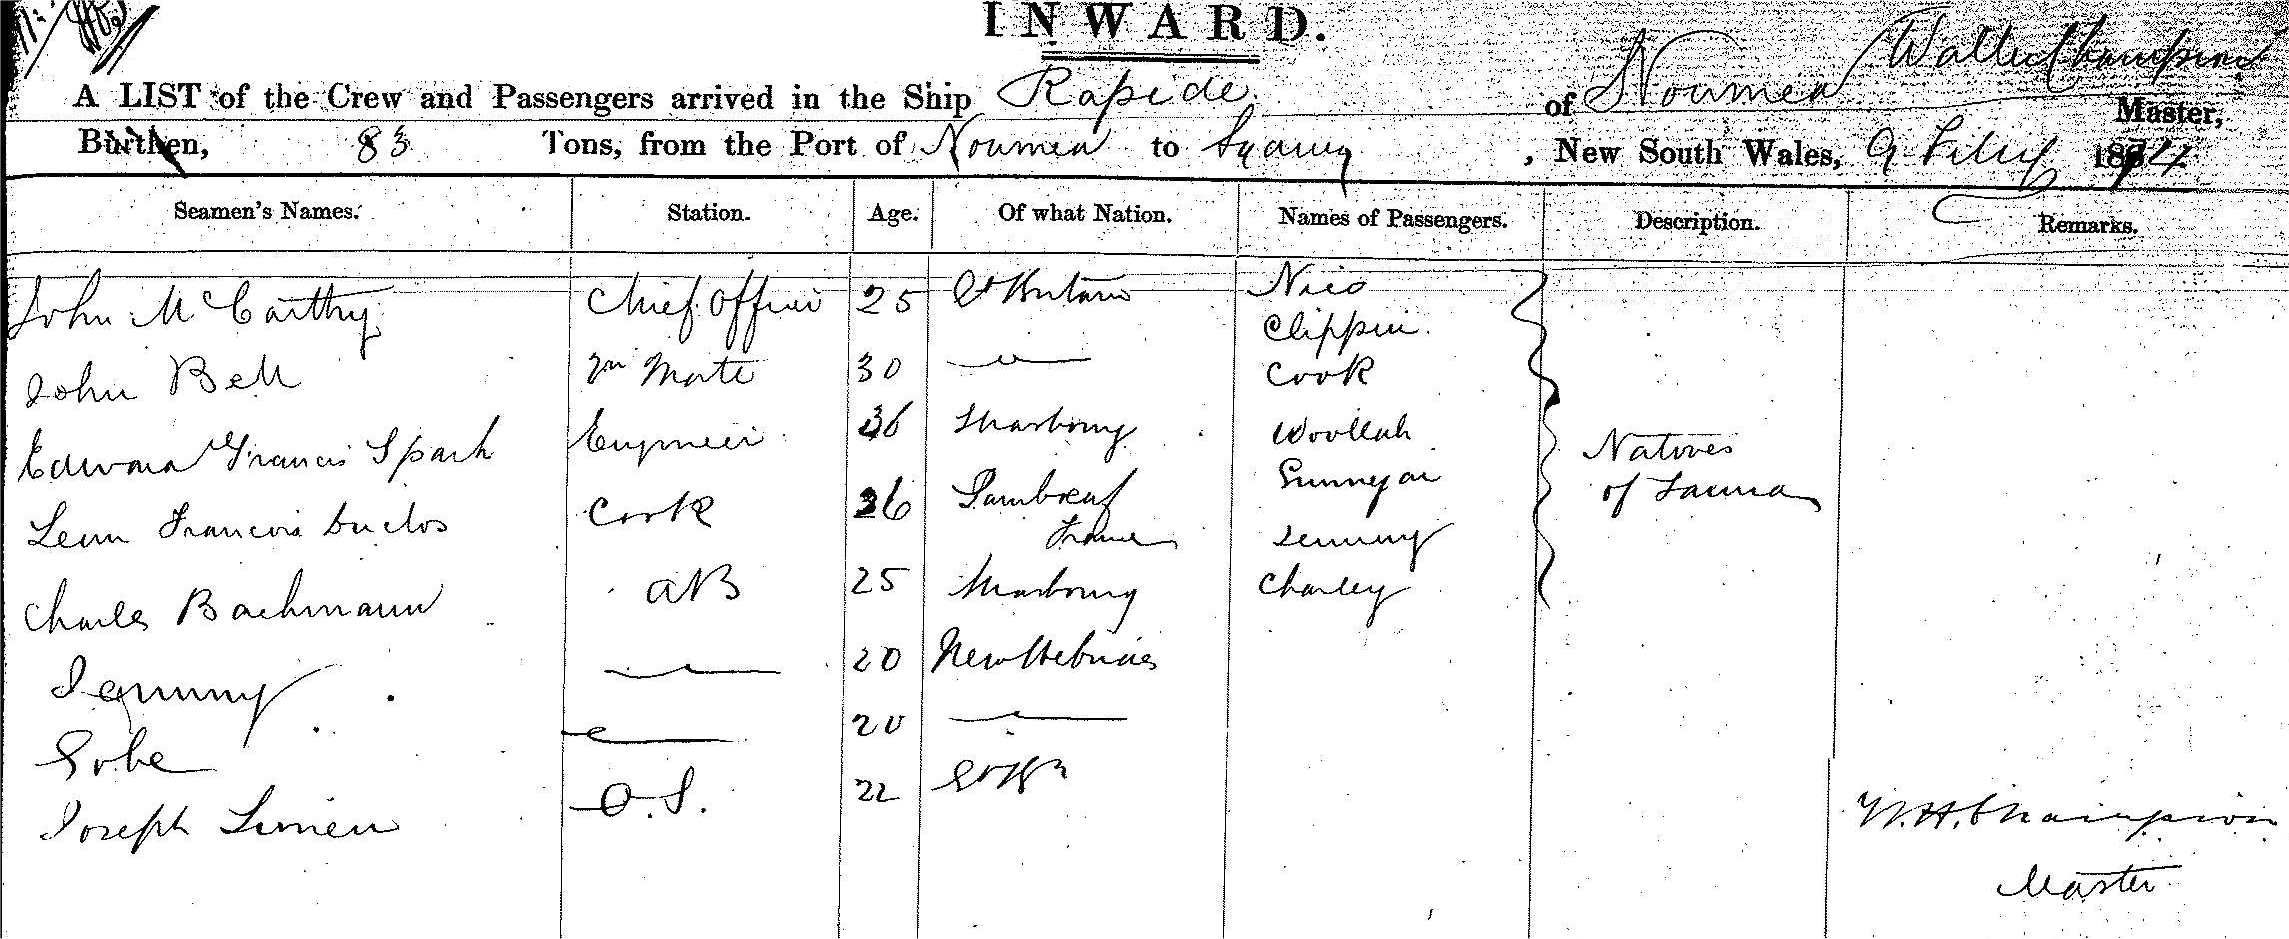 INWARD.
Walter Champion
A LIST of the Crew and Passengers arrived in the Ship Rapide of Noumea Master,
Burthen, 83 Tons, from the Port of Noumea to Sydney, New South Wales, 9 Feby 1874
Seamen's Names. Station. Age. Of what Nation. Names of Passengers. Description. Remarks.
John McCarthy Chief Officer 25 Gt Britain Nico
Clippin
John Bell 2nd Mate 30 Cook
Edward Francis Spark Engineer 36 Woollah
Natives
Leon Francois Duclos Cook 36 Paimboeuf
of Tanna
France Jemmy
Charles Bachmann AB 25 Charley
Jemmy 20 New Hebrides
Sobe 20
Joseph O.S. 22
W. H. Champion
Master